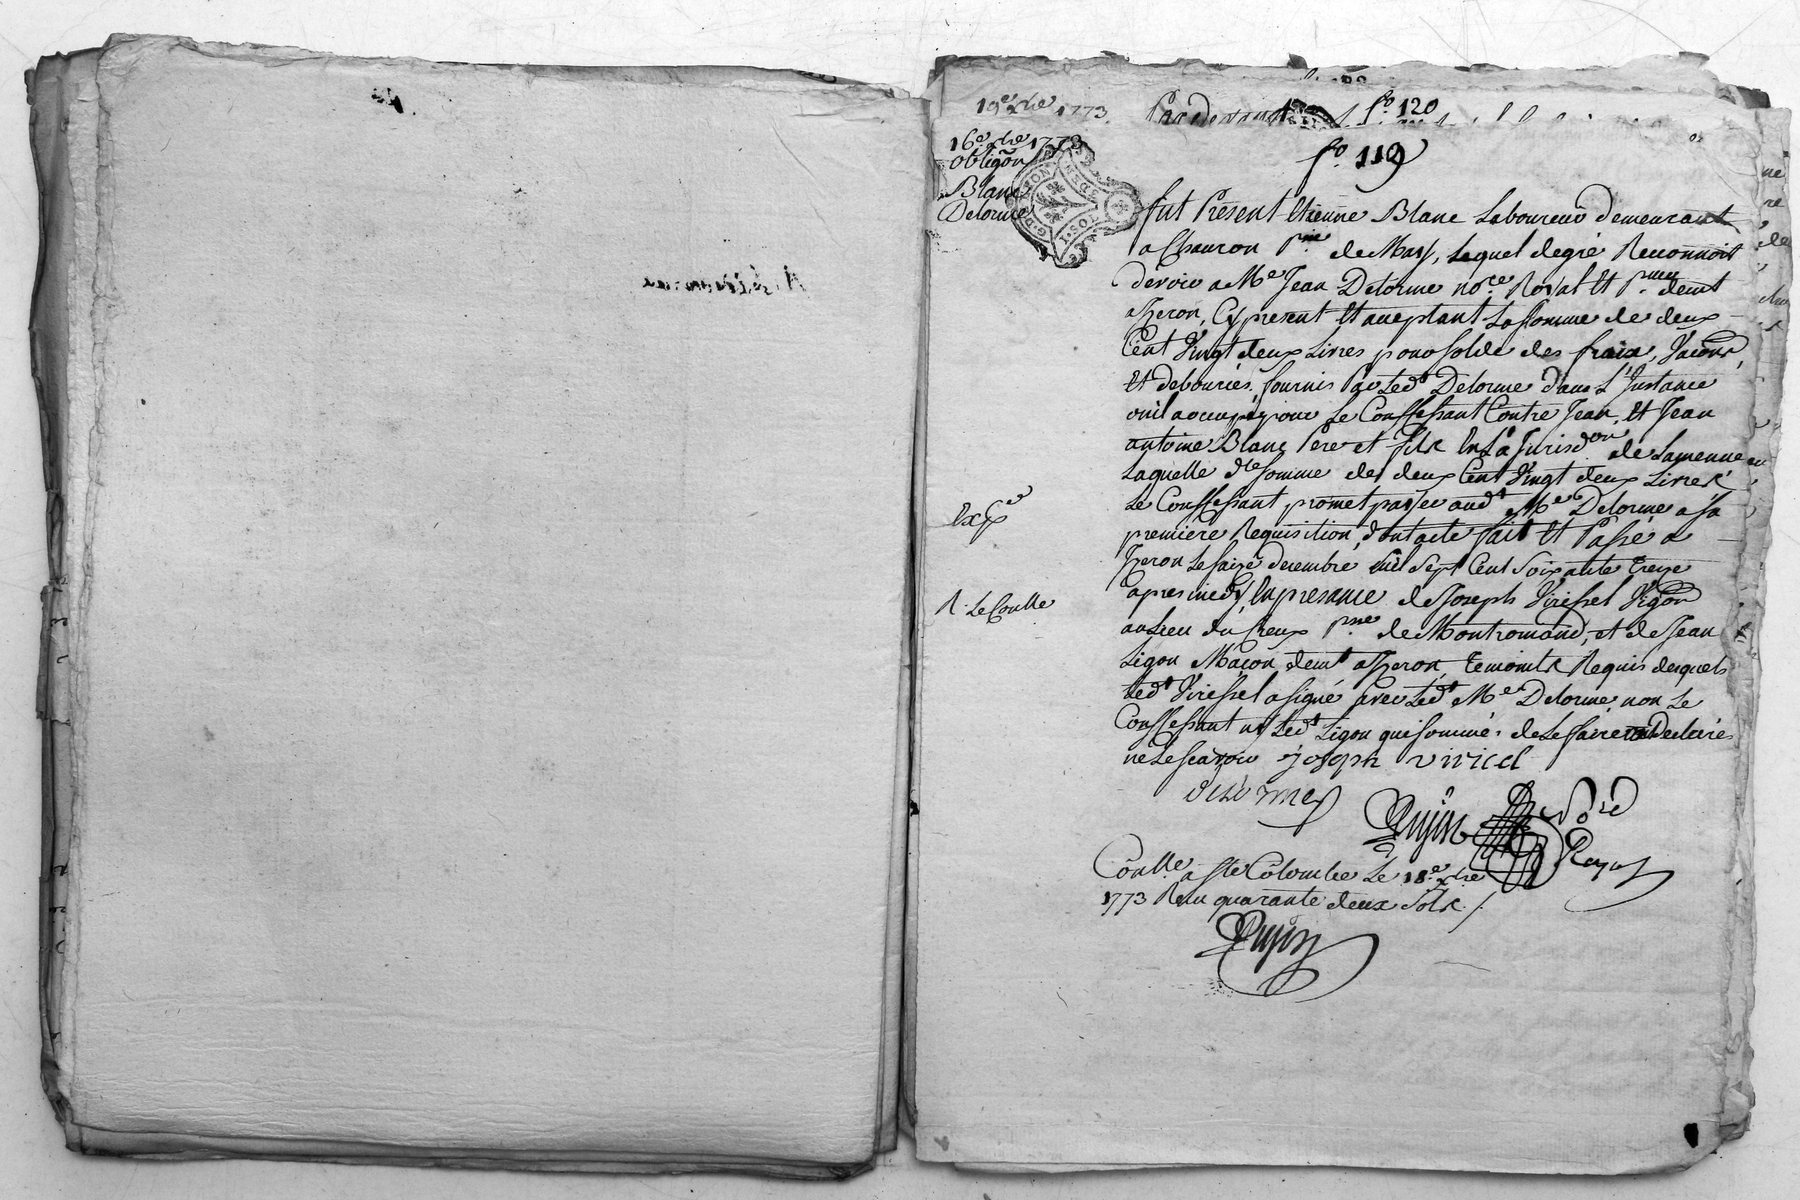 19e xbre 1773.
Pardevant
fo. 120
16e xbre 1773
obligõn
Blanc
Delorme
fo. 119
fut Présent Etienne Blanc Laboureur demeurant
a Chauron Psse de Mars, Lequel degré Reconnoit
devoir a Me Jean Delorme nore Royal Et Pr. demt
aTheron, Cy present Et aceptant La somme de deux
Cent Vingt deux Livres pour solde des fraix, Vaćons
Et debourcés fournis Par Ledt Delorme dans L'Instance
ou il a occupé pour Le Conffessant Contre Jean, Et Jean
antoine Blanc Pere et fils En La Jurisdon. de
Laquelle dte somme de deux Cent Vingt deux Livres
Le Conffessant promet payer audt Me Delorme a sa
premiere Requisition, dont acte fait Et Passé a
Theron Le saize decembre mil Sept Cent Soixante treze
apres midy, En presance de Joseph Viressel Vigon
au Lieu du Creux Psse de Montromand, et de Jean
Ligon Maçon demt aTheron temoints Requis desquels
Ledt Viressel a signé avec Ledt Me Delorme, non Le
Conffessant ni Ledt Ligon qui sommé de Le faire ont Declarés
ne Le scavoir joseph viricel
delorme
Dujin
nore
Royal
Coñlle a Ste Colombe Le 18e xbre
1773 Reçu quarante deux sols
Dujin
Exp ee
R. Le Conlle